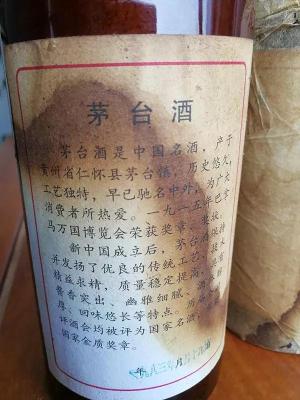 茅台酒
茅台酒是中国名酒，产于
贵州省仁怀县茅台镇，历史悠久，
工艺独特，早已驰名中外，为广大
消费者所热爱。一九一五年巴拿
马万国博览会荣获奖章、奖状。
新中国成立后，茅台酒保持
并发扬了优良的传统工艺，
精益求精，质量稳定提高，
酱香突出、幽雅细腻、酒
厚、回味悠长等特点。历
评酒会均被评为国家名酒，
国家金质奖章。
一九八三年